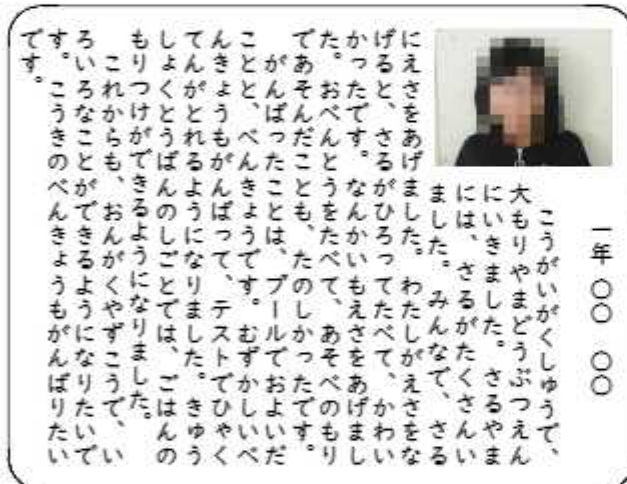 一年 〇〇 〇〇
こうがいがくしゅうで、
大もりやまどうぶつえん
にいきました。さるやま
には、さるがたくさんい
ました。みんなで、さる
にえさをあげました。わたしがえさをな
げると、さるがひろってたべて、かわい
かったです。なんかいもえさをあげまし
た。おべんとうをたべて、あそべのもり
であそんだことも、たのしかったです。
がんばったことは、プールでおよいだ
ことと、べんきょうです。むずかしいべ
んきょうもがんばって、テストでひゃく
てんがとれるようになりました。きゅう
しょくとうばんのしごとでは、ごはんの
もりつけができるようになりました。
これからも、おんがくやずこうで、い
ろいろなことができるようになりたいで
す。こうきのべんきょうもがんばりたい
です。